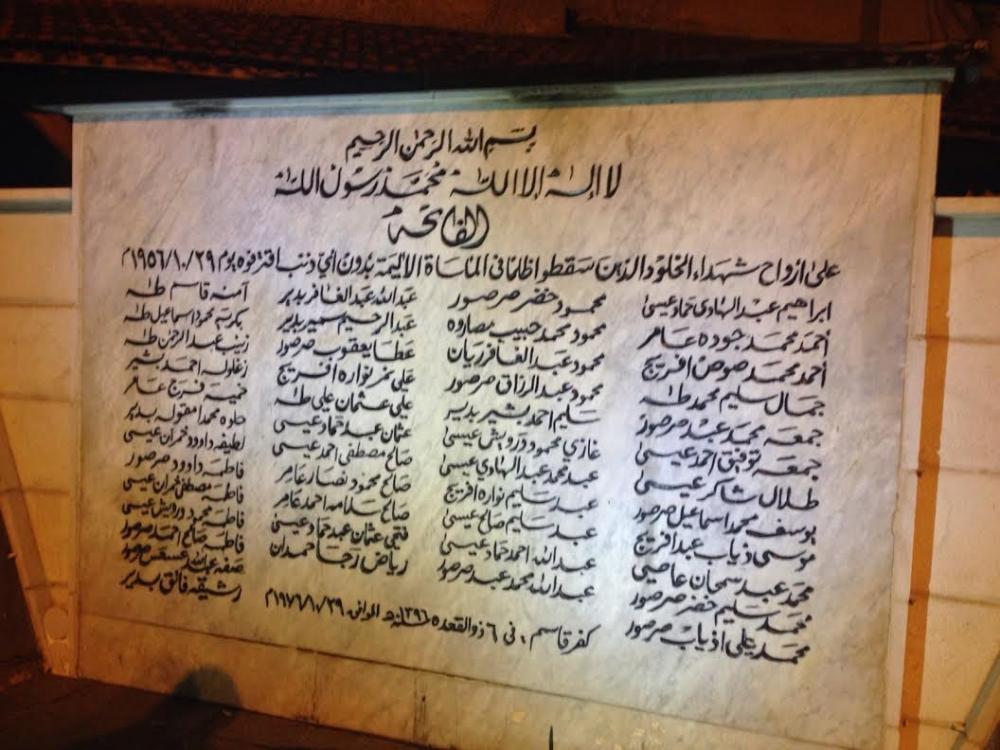 بسم الله الرحمن الرحيم
لا إله إلا الله محمد رسول الله
الفاتحة
على أرواح شهداء الخلود الذين سقطوا ظلما في المأساة الأليمة بدون أي ذنب اقترفوه يوم ٢٩/١٠/١٩٥٦م
ابراهيم عبد الهادي حماد عيسى
أحمد محمد جوده عامر
أحمد محمد صوص افريج
جمال سليم محمد طه
جمعه محمد عبد صرصور
جمعه توفيق احمد عيسى
طلال شاكر عيسى
يوسف محمد اسماعيل صرصور
موسى ذياب عبد افريج
محمد عبد سمحان عاصي
محمد سليم خضر صرصور
محمد علي اذياب صرصور
محمود خضر صرصور
محمود محمد حبيب مصاروه
محمود عبد الغافر ريان
محمود عبد الرازق صرصور
سليم احمد بشير بدير
غازي محمود درويش عيسى
عبد محمد عبد الهادي عيسى
عبد سليم نواره افريج
عبد سليم صالح عيسى
عبد الله احمد حماد عيسى
عبد الله محمد عبد صرصور
عبد الله عبد الغافر بدير
عبد الرحيم سمير بدير
عطا يعقوب صرصور
علي نمر نواره افريج
علي عثمان علي طه
عثمان عبد حماد عيسى
صالح مصطفى احمد عيسى
صالح محمود نصار عامر
صالح سلامه احمد عامر
فتحي عثمان عبد حماد عيسى
رياض رجا حمدان
آمنه قاسم طه
بكريه محمود اسماعيل طه
زينب عبد الرحمن طه
زغلوله احمد بشير
خميسه فرج عامر
حلوه محمد بدير
لطيفه داوود حمران عيسى
فاطمه داوود صرصور
فاطمه مصطفى حمران عيسى
فاطمه محمود درويش عيسى
فاطمه صالح احمد صرصور
صفه عبد الله صرصور
رشيقه فائق بدير
كفر قاسم، في ٦ ذو القعده ١٣٩٦ هـ الموافق ٢٩/١٠/١٩٧٦م